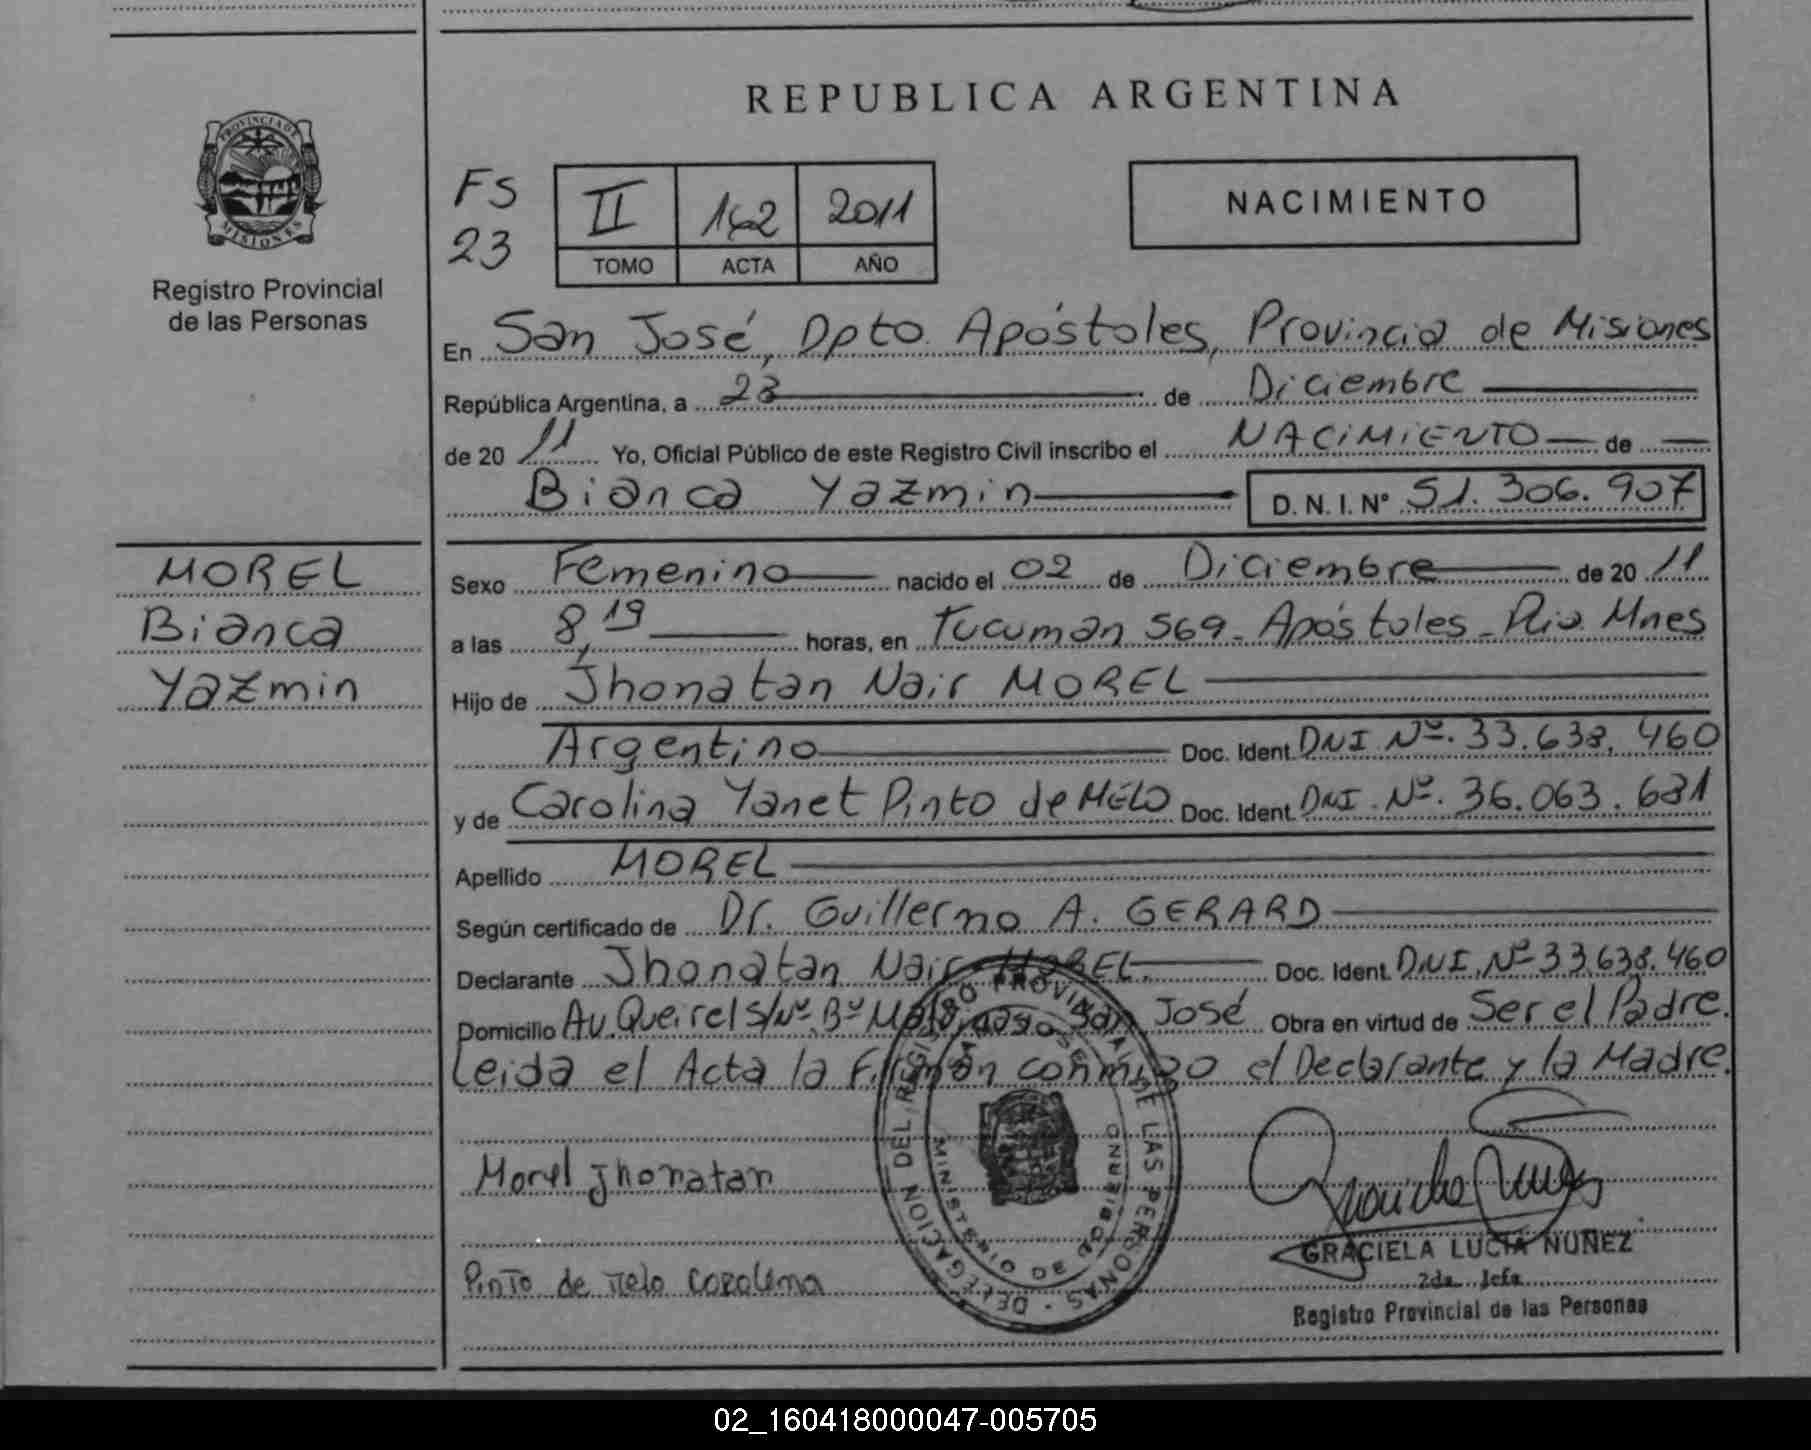 REPUBLICA ARGENTINA
PROVINCIA DE MISIONES
Registro Provincial
de las Personas
FS
23
II 142 2011
TOMO ACTA AÑO
NACIMIENTO
En San José, Dpto. Apóstoles, Provincia de Misiones
República Argentina, a 23 de Diciembre
de 2011 Yo, Oficial Público de este Registro Civil inscribo el NACIMIENTO de
Bianca Yazmin D. N. I. Nº 51.306.907
MOREL
Bianca
Yazmin
Sexo Femenino nacido el 02 de Diciembre de 2011
a las 8,19 horas, en Tucuman 569 - Apóstoles - Mnes
Hijo de Jhonatan Nair MOREL
Argentino Doc. Ident. DNI Nº. 33.638.460
y de Carolina Yanet Pinto de MELO Doc. Ident. DNI. Nº. 36.063.681
Apellido MOREL
Según certificado de Dr. Guillermo A. GERARD
Declarante Jhonatan Nair MOREL Doc. Ident. DNI. Nº 33.638.460
Domicilio Av. Queirel S/Nº Bº San José Obra en virtud de Ser el Padre.
Leida el Acta la Firman conmigo el Declarante y la Madre.
Morel Jhonatan
Pinto de Melo Carolina
DELEGACION DEL REGISTRO PROVINCIAL DE LAS PERSONAS
MINISTERIO DE GOBIERNO
SAN JOSE
GRACIELA LUCIA NUÑEZ
2da. Jefa
Registro Provincial de las Personas
02_160418000047-005705